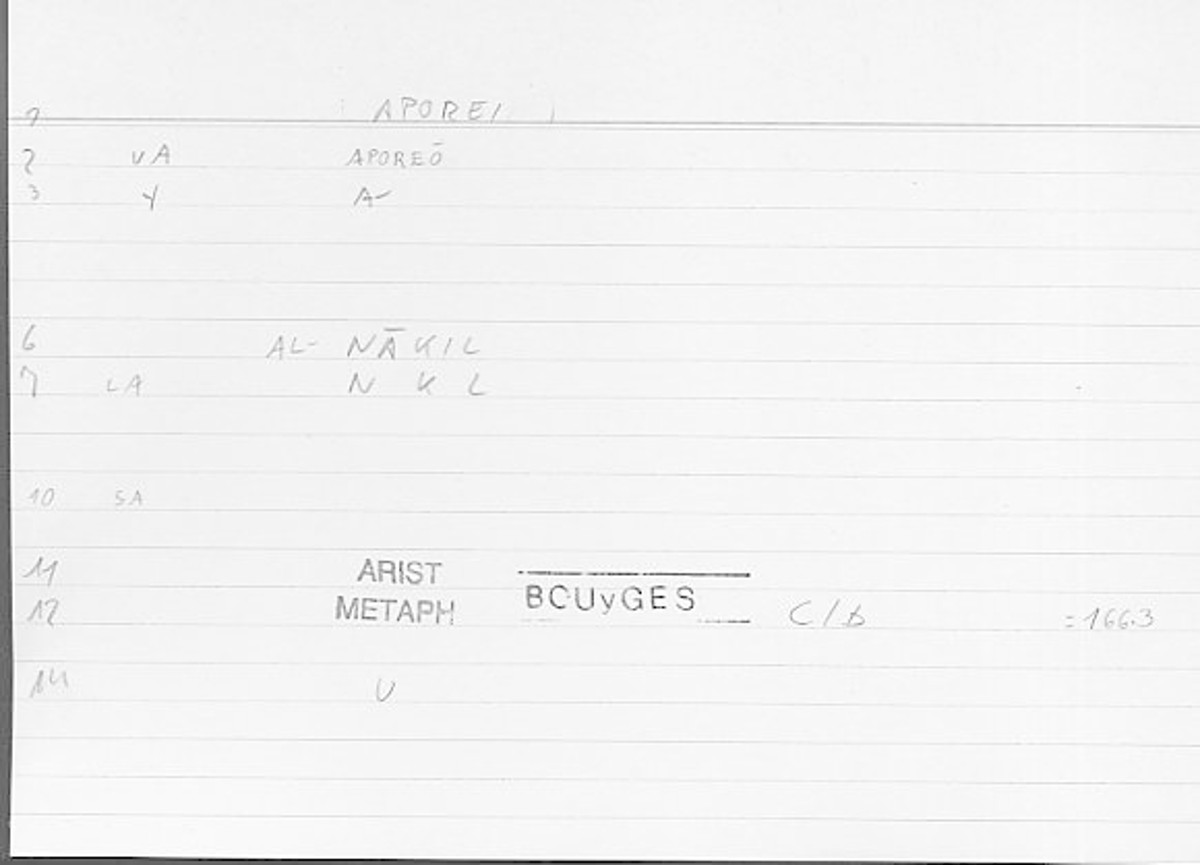 1 APOREI
2 VA APOREŌ
3 Y A-
6 AL- NĀKIL
7 LA N K L
10 SA
11 ARIST
12 METAPH BOUyGES C/B =166.3
14 U